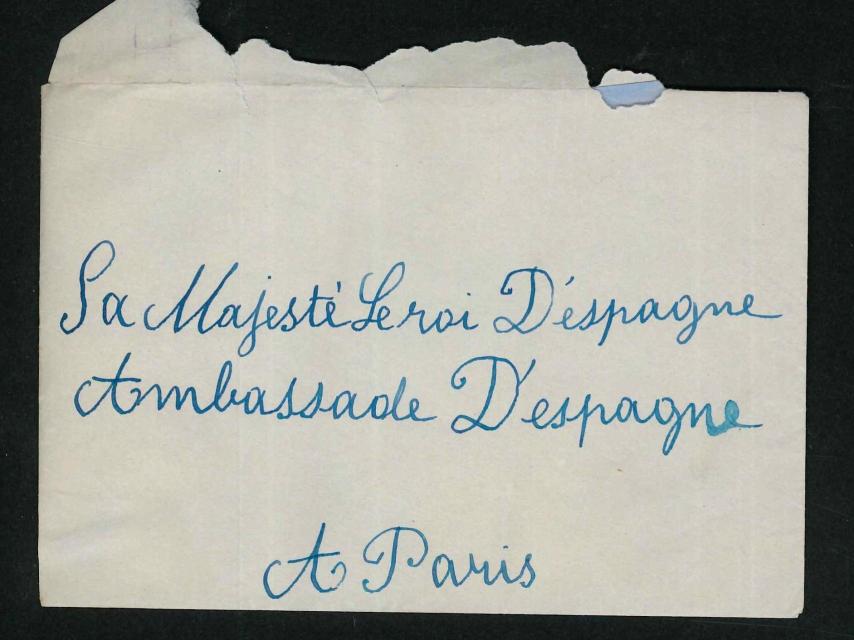 Sa Majesté Le roi D'espagne
Ambassade D'espagne
A Paris